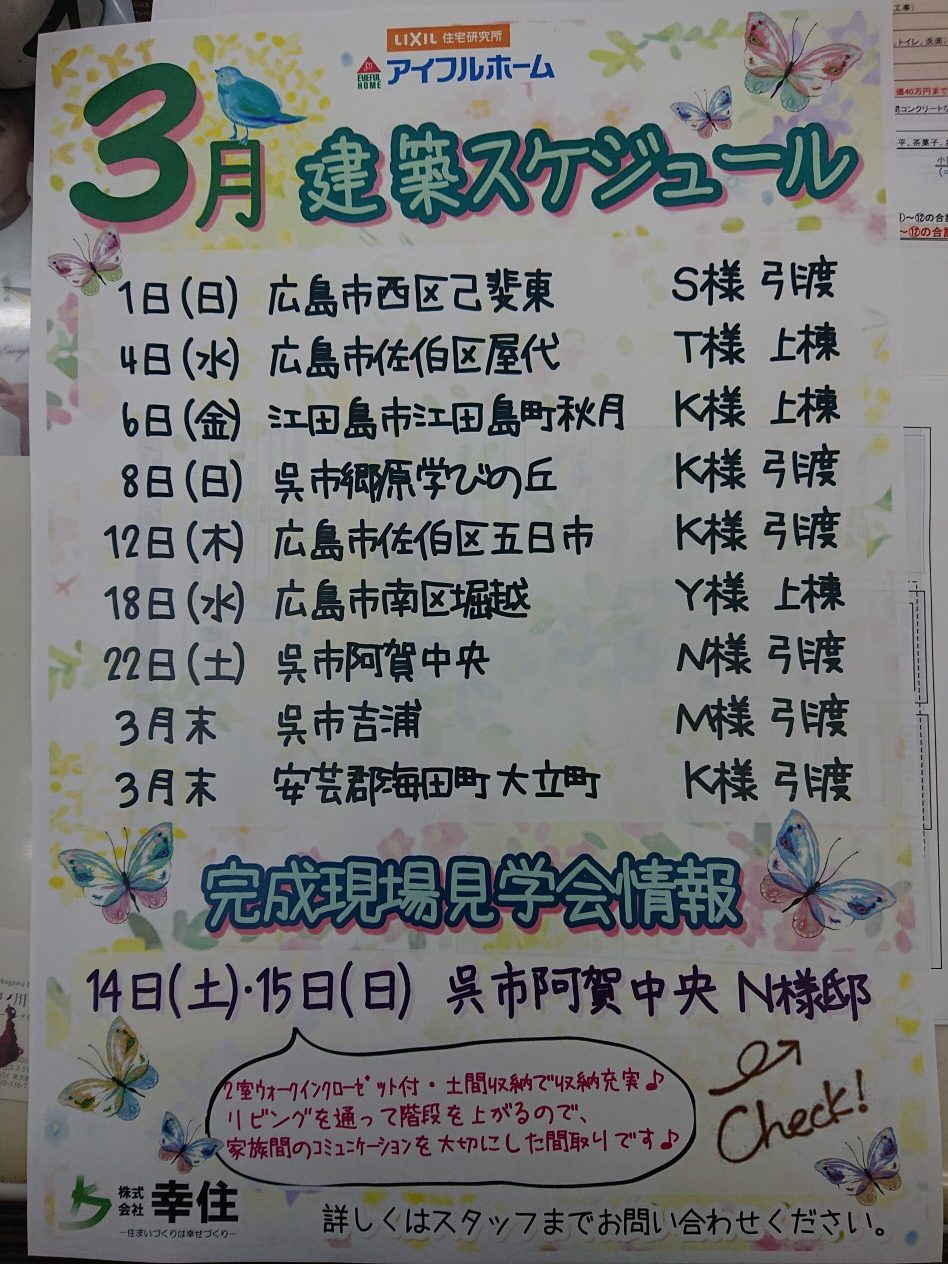 LIXIL 住宅研究所
EYEFUL HOME アイフルホーム
3月 建築スケジュール
1日(日) 広島市西区己斐東 S様 引渡
4日(水) 広島市佐伯区屋代 T様 上棟
6日(金) 江田島市江田島町秋月 K様 上棟
8日(日) 呉市郷原学びの丘 K様 引渡
12日(木) 広島市佐伯区五日市 K様 引渡
18日(水) 広島市南区堀越 Y様 上棟
22日(土) 呉市阿賀中央 N様 引渡
3月末 呉市吉浦 M様 引渡
3月末 安芸郡海田町大立町 K様 引渡
完成現場見学会情報
14日(土)・15日(日) 呉市阿賀中央 N様邸
2室ウォークインクローゼット付・土間収納で収納充実♪
リビングを通って階段を上がるので、
家族間のコミュニケーションを大切にした間取りです♪
Check!
株式会社 幸住
―住まいづくりは幸せづくり―
詳しくはスタッフまでお問い合わせください。
工事)
トイレ、洗濯
価40万円まで
平、茶菓子、
①～⑫の合
～⑫の合